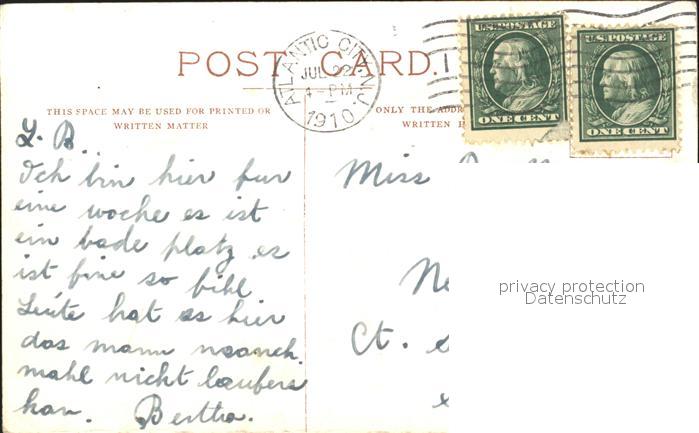 POST CARD.
ATLANTIC CITY, N.J.
JUL 22
4-PM
1910
U.S. POSTAGE
ONE CENT
U.S. POSTAGE
ONE CENT
THIS SPACE MAY BE USED FOR PRINTED OR
WRITTEN MATTER
ONLY THE ADDR
WRITTEN
L. B.
Ich bin hier fur
eine woche es ist
ein bade platz es
ist fine so bihl
Leute hat es hier
das mann
mahl nicht
kan. Bertha.
Miss
Ne
Ct.
privacy protection
Datenschutz